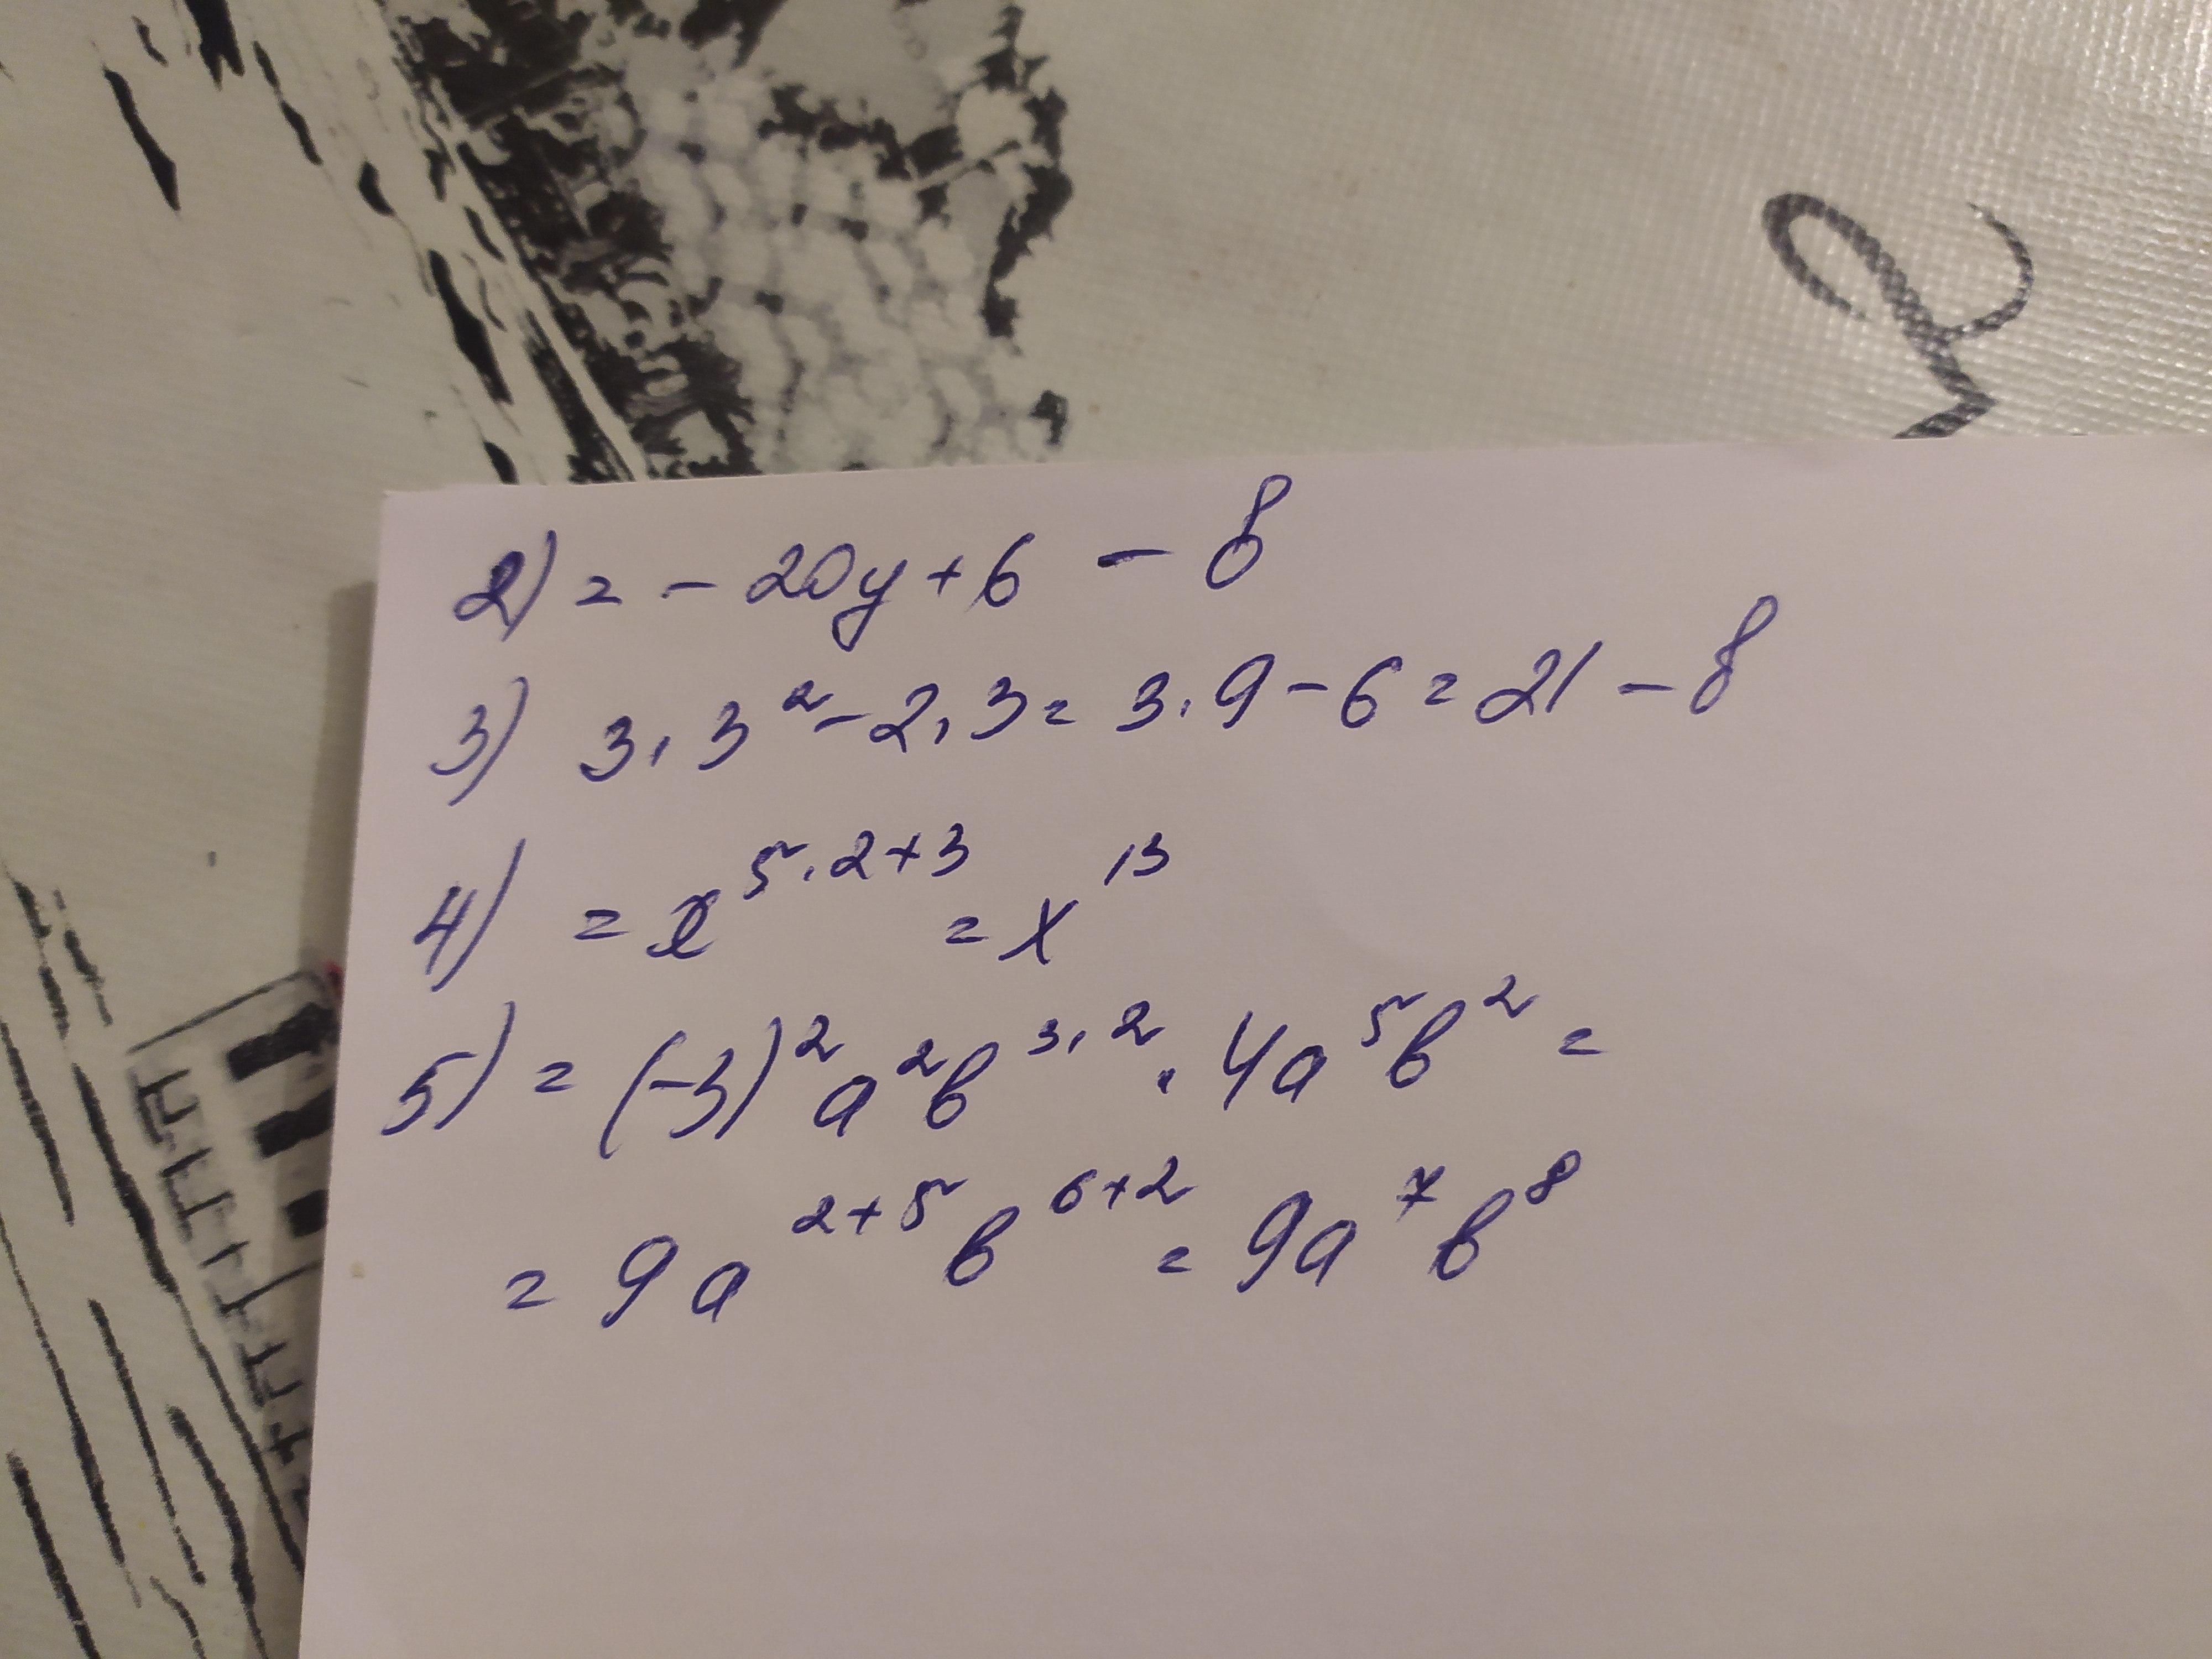 2) = - 20y + 6 - б
3) 3 · 3² - 2 · 3 = 3 · 9 - 6 = 21 - б
4) = x⁵·²⁺³ = x¹³
5) = (-3)² a² b³·² · 4a⁵b² =
= 9a²⁺⁵ b⁶⁺² = 9a⁷b⁸